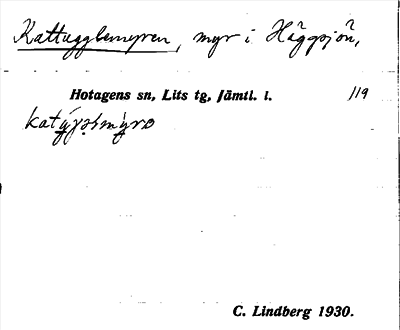 Kattugglemyren, myr i Häggsjön,
Hotagens sn, Lits tg, Jämtl. l. 119
C. Lindberg 1930.